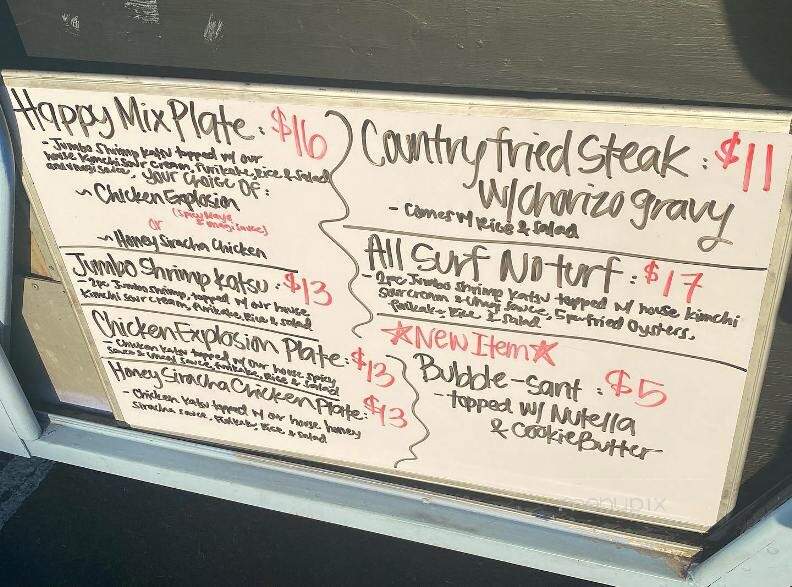 Happy Mix Plate: $16
- Jumbo Shrimp Katsu topped w/ our
house Kimchi Sour Cream, Furikake, Rice & Salad
and Unagi Sauce, Your Choice Of:
~ Chicken Explosion
(Spicy Mayo
& Unagi Sauce)
or
~ Honey Siracha Chicken
Jumbo Shrimp Katsu: $13
- 2pc Jumbo Shrimp, topped w/ our house
Kimchi Sour Cream, Furikake, Rice & Salad
Chicken Explosion Plate: $13
- Chicken Katsu topped w/ our house spicy
Sauce & Unagi Sauce, Furikake, Rice & Salad
Honey Siracha Chicken Plate: $13
- Chicken Katsu topped w/ our house honey
Siracha Sauce, Furikake, Rice & Salad
Country fried Steak: $11
w/ Chorizo gravy
- Comes w/ Rice & Salad
All Surf No turf: $17
- 2pc Jumbo Shrimp Katsu topped w/ house kimchi
Sour cream & Unagi Sauce, 5pc fried Oysters,
Furikake, Rice & Salad
☆New Item☆
Bubble-sant: $5
- topped w/ Nutella
& Cookie Butter-